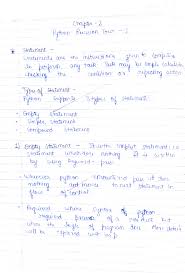 Chapter - 2
Python Revision Tour - 1
Statement -
Statements are the instructions given to computer
to perform any task. Task may be simple calculation,
checking the condition or repeating action.
Types of Statement -
Python supports 3 types of statement -
- Empty statement
- Simple statement
- Compound statement
1) Empty Statement - It is the simplest statement i.e.
statement which does nothing. It is written
by using keyword - pass
Whenever python encountered pass it does
nothing and moves to next statement in
flow of control
Required where syntax of python
required presence of a
where the logic of program does
will be